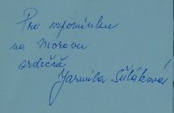 Pro vzpomínku
na Moravu
srdečně
Jarmila Šuláková